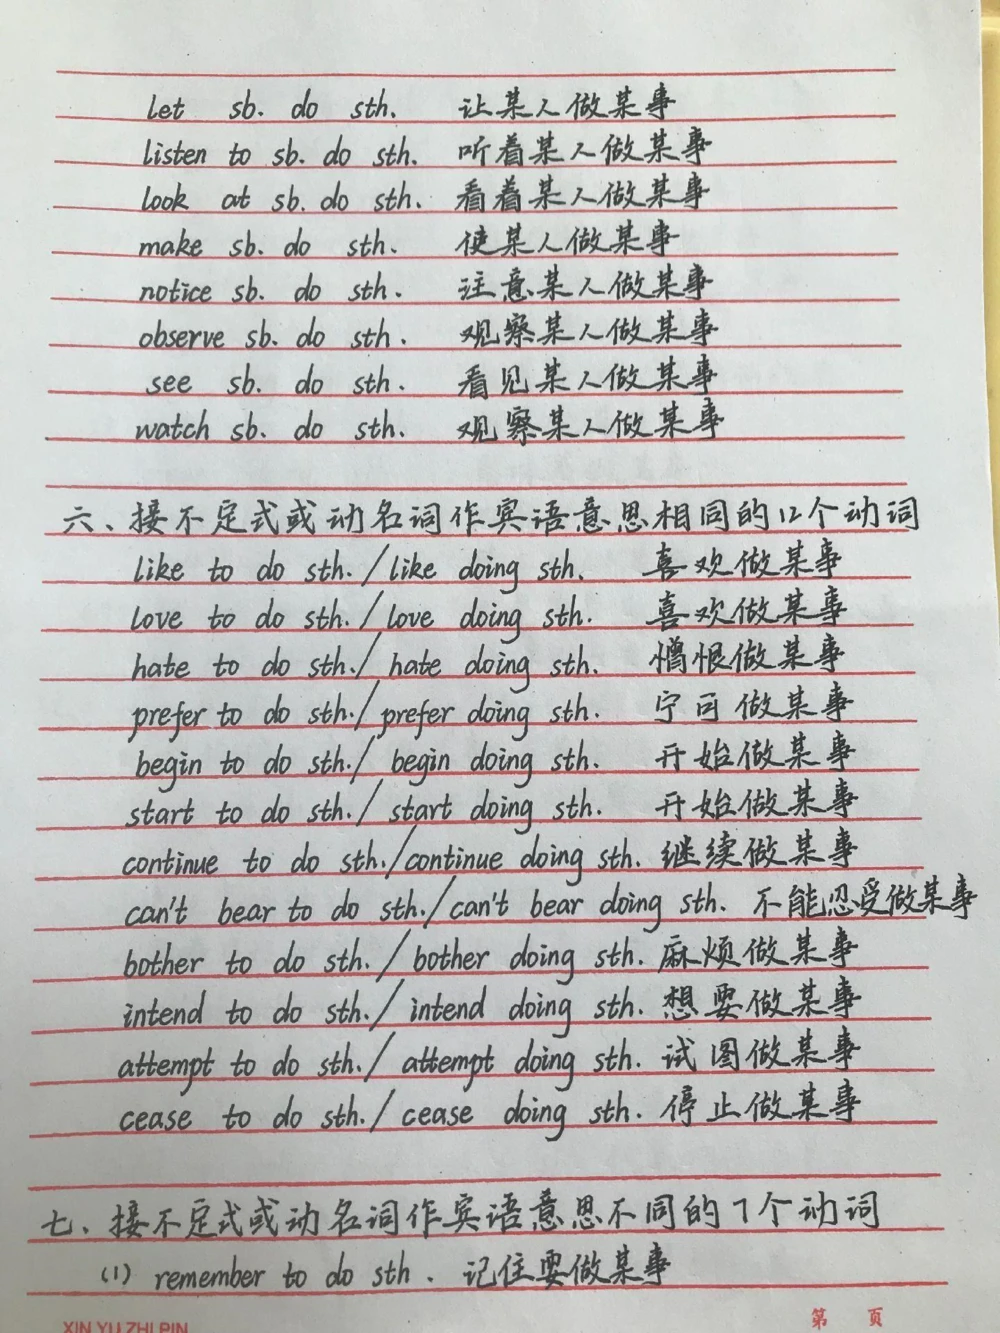 let sb. do sth. 让某人做某事
listen to sb. do sth. 听着某人做某事
look at sb. do sth. 看着某人做某事
make sb. do sth. 使某人做某事
notice sb. do sth. 注意某人做某事
observe sb. do sth. 观察某人做某事
see sb. do sth. 看见某人做某事
watch sb. do sth. 观察某人做某事
六、接不定式或动名词作宾语意思相同的12个动词
like to do sth./like doing sth. 喜欢做某事
love to do sth./love doing sth. 喜欢做某事
hate to do sth./hate doing sth. 憎恨做某事
prefer to do sth./prefer doing sth. 宁可做某事
begin to do sth./begin doing sth. 开始做某事
start to do sth./start doing sth. 开始做某事
continue to do sth./continue doing sth. 继续做某事
can't bear to do sth./can't bear doing sth. 不能忍受做某事
bother to do sth./bother doing sth. 麻烦做某事
intend to do sth./intend doing sth. 想要做某事
attempt to do sth./attempt doing sth. 试图做某事
cease to do sth./cease doing sth. 停止做某事
七、接不定式或动名词作宾语意思不同的7个动词
(1) remember to do sth. 记住要做某事
XIN YU ZHI PIN 第 页